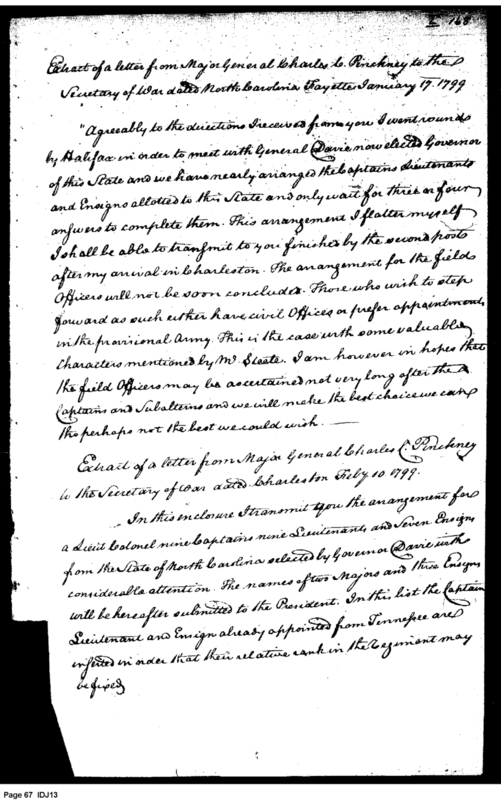 168
Extract of a letter from Major General Charles C. Pinckney to the
Secretary of War dated North Carolina Fayette January 17. 1799
"Agreeably to the directions I received from you I went round
by Halifax in order to meet with General Davie now elected Governor
of this State and we have nearly arranged the Captains Lieutenants
and Ensigns allotted to this State and only wait for three or four
answers to complete them. This arrangement I flatter myself
I shall be able to transmit to you finished by the second post
after my arrival in Charleston. The arrangement for the field
Officers will not be soon concluded. Those who wish to step
forward as such either have civil Offices or prefer appointments
in the provisional Army. This is the case with some valuable
Characters mentioned by Mr. Steele. I am however in hopes that
the field Officers may be ascertained not very long after the
Captains and Subalterns and we will make the best choice we can
tho perhaps not the best we could wish. —
Extract of a letter from Major General Charles C. Pinckney
to the Secretary of War dated Charleston Feby 10 1799.
In this enclosure I transmit you the arrangement for
a Lieut Colonel nine Captains nine Lieutenants and Seven Ensigns
from the State of North Carolina selected by Governor Davie with
considerable attention. The names of two Majors and three Ensigns
will be hereafter submitted to the President. In this list the Captain
Lieutenant and Ensign already appointed from Tennessee are
inserted in order that their relative rank in the Regiment may
be fixed
Page 67 IDJ13